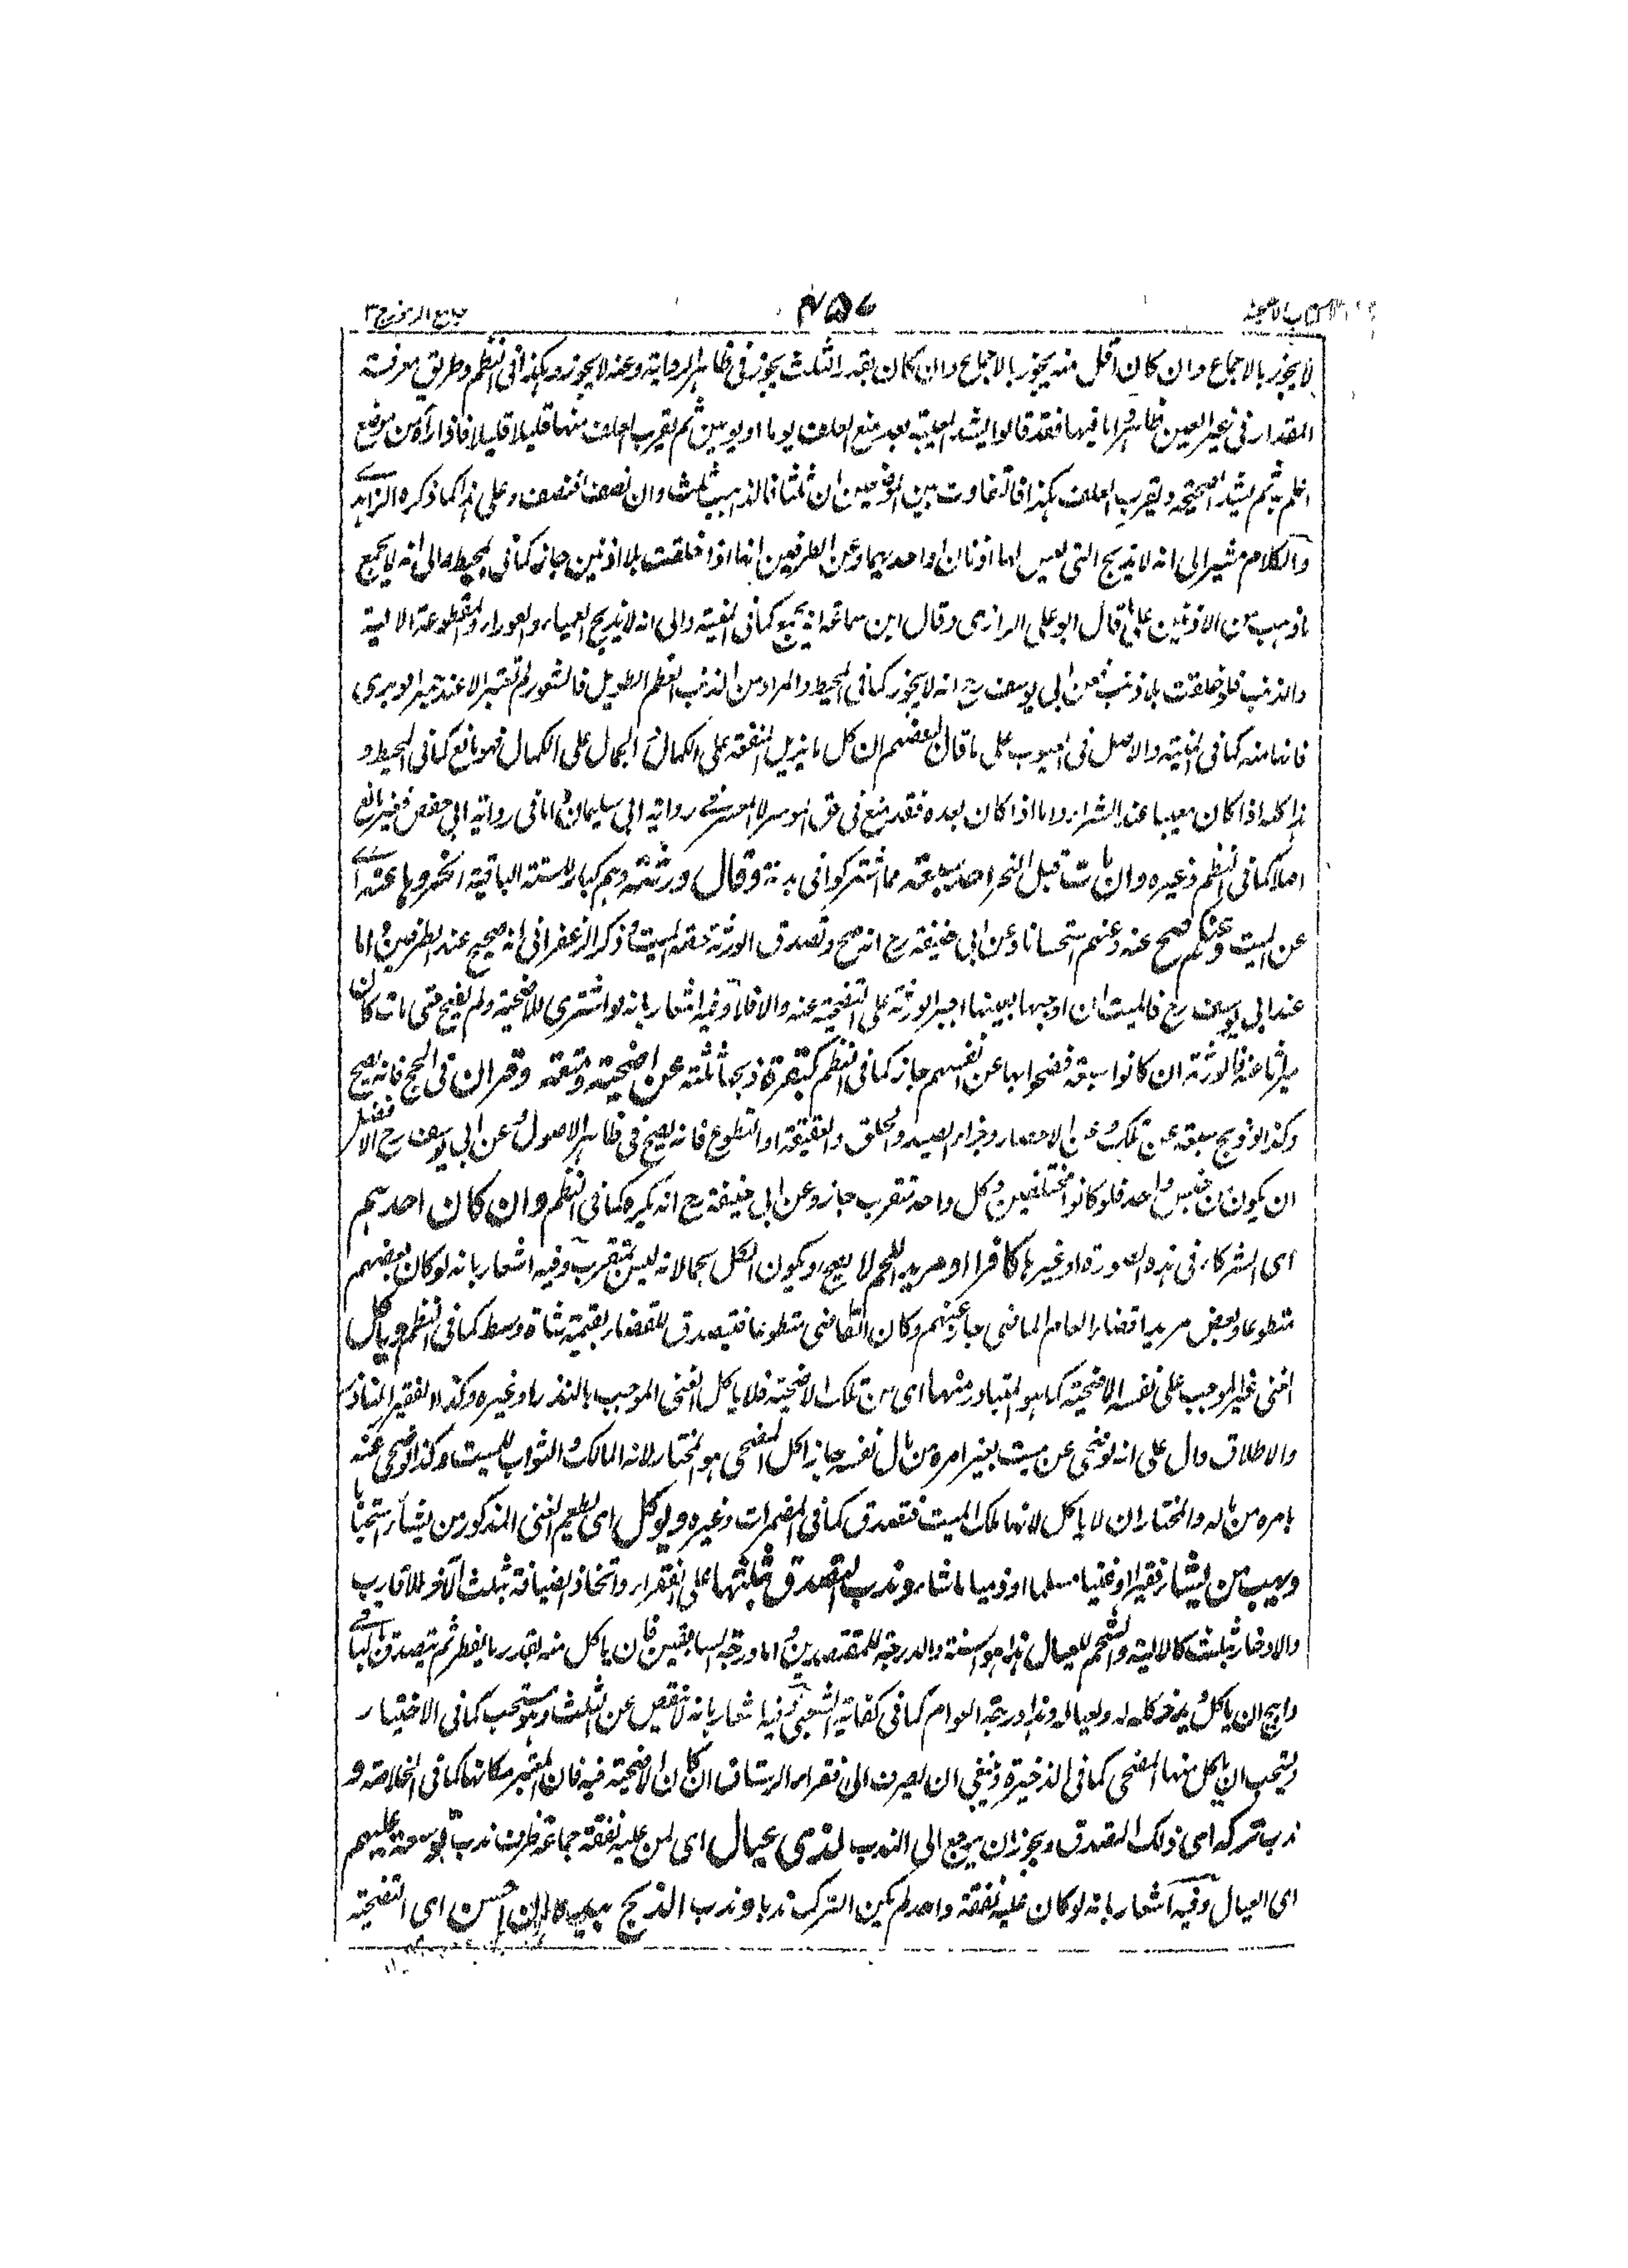 كتاب الاضحية ٤٥٧ جامع الرموز ج٣
لا يجوز بالاجماع وان كان اقل منه يجوز بالاجماع وان كان بقدر الثلث يجوز في ظاهر الرواية وعنه لا يجوز وهكذا في النظم وطريق معرفة
المقدار في غير العين ظاهر واما فيها فقد قالوا يشد المعيبة بعد منع العلف يوما او يومين ثم يقرب العلف منها قليلا قليلا فاذا رآه من موضع
اعلم به ثم يشد الصحيحة ويقرب العلف هكذا فالتفاوت بين الموضعين ان ثلثا فالذاهب ثلث وان نصفا فنصف وعلى هذا كما ذكره الزاهدي
والكلام مشير الى انه لا يذبح التي ليس لها اذنان او احديهما وعن الطرفين انها اذا خلقت بلا اذنين جاز كما في المحيط والى انه لا يجمع
ما ذهب من الاذنين على ما قال ابو علي الرازي وقال ابن سماعة انه يجمع كما في المنية والى انه لا يذبح العمياء والعوراء والمقطوعة الالية
والذنب فلو خلقت بلا ذنب فعن ابي يوسف رح انه لا يجوز كما في المحيط والمراد من الذنب العظم الطويل فالشعور لم تعتبر الا عند عمير الوبري
فانها منه كما في المنية والاصل في العيوب على ما قال بعضهم ان كل ما يزيل المنفعة على الكمال او الجمال على الكمال فهو مانع كما في المحيط و
هذا كله اذا كان معيبا عند الشراء واما اذا كان بعده فقد منع في حق الموسر لا المعسر في رواية ابي سليمان واما في رواية ابي حفص فغير مانع
اصلا كما في النظم وغيره وان مات قبل النحر احد سبعة مما اشتركوا في بدنة وقال ورثته وهم كبار للستة الباقية انحروها عنه اي
عن الميت وعنكم صح عنه وعنهم استحسانا وعن ابي حنيفة رح انه صح وتصدق الورثة حصة الميت وذكر الزعفراني انه صحيح عند الطرفين واما
عند ابي يوسف رح فالميت ان اوجبها بعينها اجبر الورثة على التضحية عنه والا فلا وفيه اشعار بانه لو اشترى للاضحية ولم يضح حتى مات كان
ميراثا عنه فالورثة ان كانوا سبعة فضحوا بها عن انفسهم جاز كما في النظم كبقرة ذبحها ثلثة عن اضحية ومتعة وقران في الحج فانه يصح
وكذا لو ذبح سبعة عن تلك وعن الاحصار وجزاء الصيد والحلق والعقيقة او التطوع فانه يصح في ظاهر الاصول وعن ابي يوسف رح الافضل
ان يكون من جنس واحد فلو كانوا مختلفين وكل واحد متقرب جاز وعن ابي حنيفة رح انه يكره كما في النظم وان كان احدهم
اي الشركاء في هذه الصورة او غيرها كافرا او مريد اللحم لا يصح ويكون الكل لحما لانه ليس بتقرب وفيه اشعار بانه لو كان بعضهم
متطوعا وبعض مريدا قضاء العام الماضي جاز عنهم وكان القاضي متطوعا فيتصدق للقضاء بقيمة شاة وسط كما في النظم وياكل
الغني غير الموجب على نفسه الاضحية كما هو المتبادر منها اي من تلك الاضحية فلا ياكل الغني الموجب بالنذر او غيره وكذا الفقير الناذر
والاطلاق دال على انه لو ضحى عن ميت بغير امره من مال نفسه جاز اكل المضحي هو المختار لانه المالك والثواب للميت وكذا لو ضحى عنه
بامره من ماله والمختار ان لا ياكل لانها ملك الميت فتصدق كما في المضمرات وغيره ويوكل اي يطعم الغني المذكور من يشاء استحبابا
ويهب من يشاء فقيرا او غنيا مسلما او ذميا ما شاء وندب التصدق بثلثها على الفقراء واتخاذ الضيافة بثلث الآخر للاقارب
والادخار بثلث كالالية والشحم للعيال هذا هو السنة والدرجة للمقتصدين واما درجة السابقين فان ياكل منه بقدر ما يفطر ثم يتصدق بالباقي
وابيح ان ياكل ويدخر كله له ولعياله وهذا درجة العوام كما في كفاية الشعبي وفيه اشعار بانه لا ينقص عن الثلث وهو مستحب كما في الاختيار
ويستحب ان ياكل منها المضحي كما في الذخيرة وينبغي ان يصرف الى فقراء الرستاق ان كان الاضحية فيه فان المعتبر مكانها كما في الخلاصة و
ندب تركه اي ذلك التصدق ويجوز ان يرجع الى الندب لذي عيال اي لمن عليه نفقة جماعة ظرف ندب توسعة عليهم
اي العيال وفيه اشعار بانه لو كان عليه نفقة واحد لم يكن الترك ندبا وندب الذبح بيده ان احسن اي التضحية